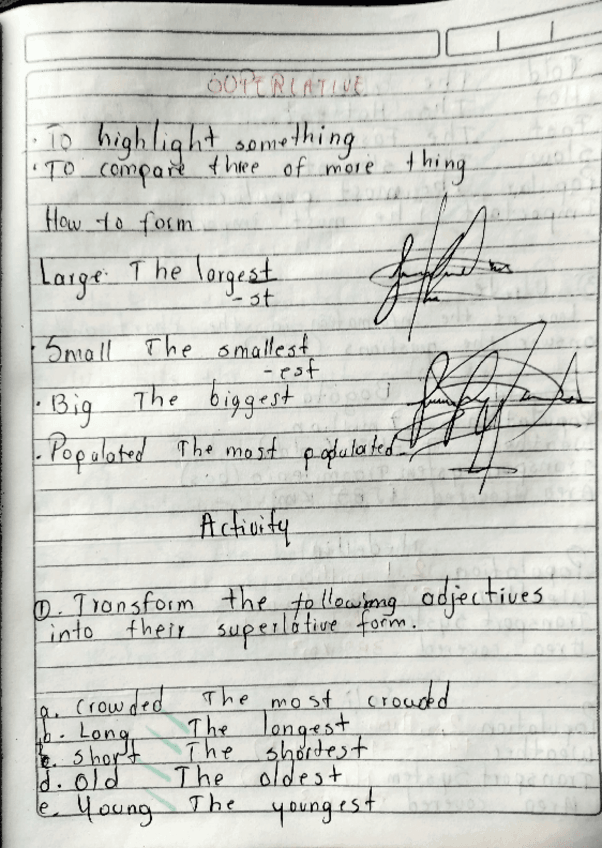 OOPERLATIVE
· To highlight something
· To compare three of more thing
How to form
Large: The largest
- st
· Small The smallest
- est
· Big The biggest
· Populated The most populated
Activity
①. Transform the following adjectives
into their superlative form.
a. crowded The most crowded
b. Long The longest
c. short The shortest
d. old The oldest
e. Young The youngest